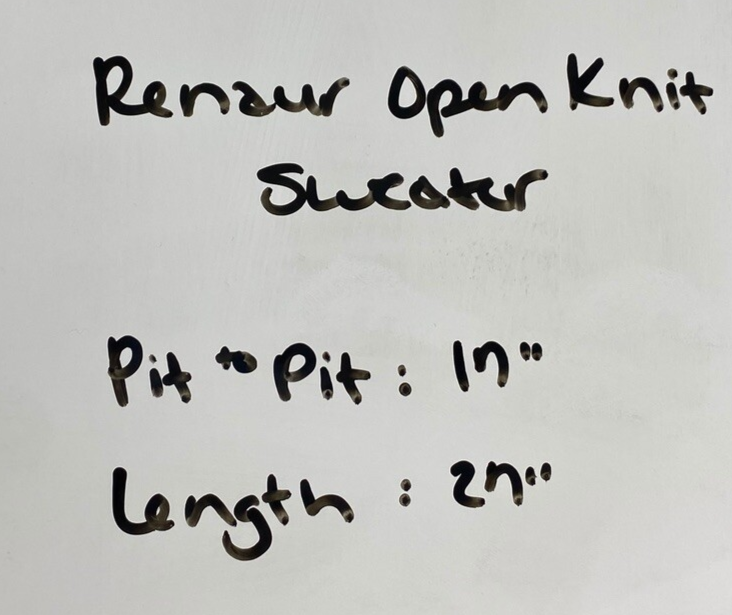 Renaur Open Knit
Sweater
Pit to Pit : 17"
Length : 27"